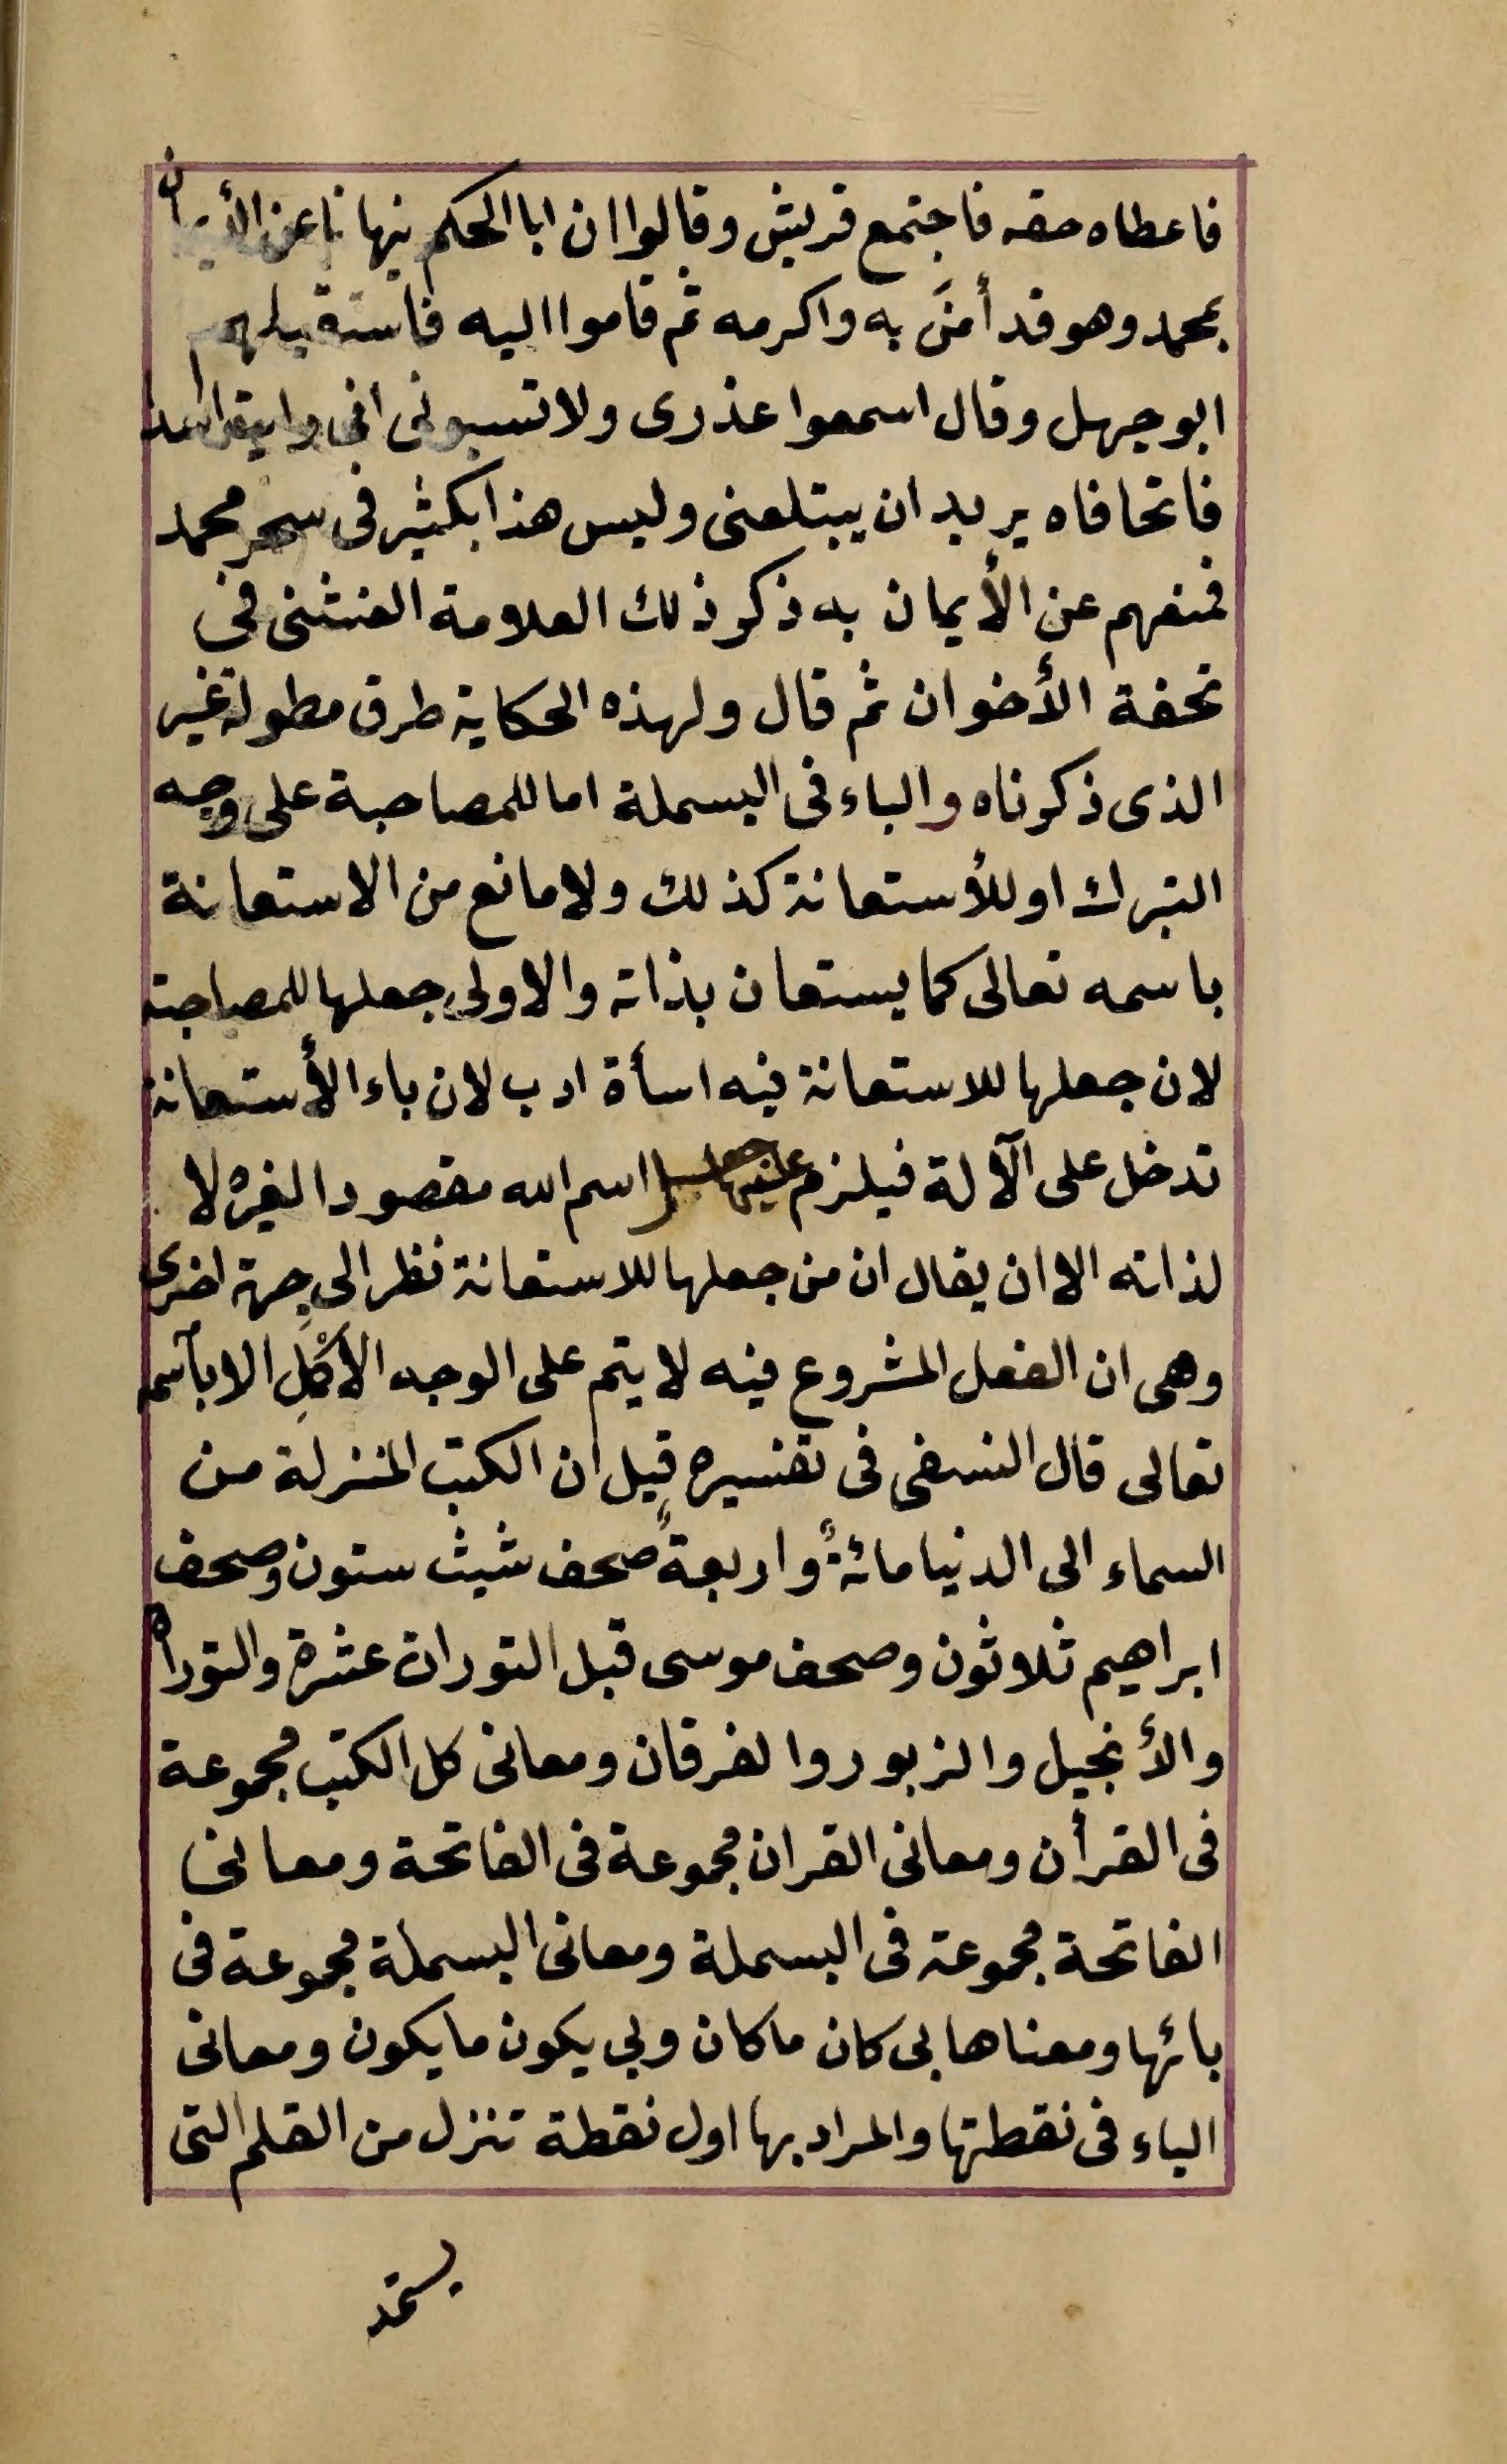 فاعطاه حقه فاجتمع قريش وقالوا ان ابا الحكم ينهانا عن الأيمان
بمحمد وهو قد أمنَ به واكرمه ثم قاموا اليه فاستقبلهم
ابو جهل وقال اسمعوا عذرى ولا تسبونى انى رايت اسدا
فاتحا فاه يريد ان يبتلعنى وليس هذا بكثير فى سحر محمد
فمنعهم عن الأيمان به ذكر ذلك العلامة الفشنى فى
تحفة الأخوان ثم قال ولهذه الحكاية طرق مطولة غير
الذى ذكرناه والباء فى البسملة اما للمصاحبة على وجه
التبرك او للأستعانة كذلك ولا مانع من الاستعانة
باسمه تعالى كما يستعان بذاته والاولى جعلها للمصاحبة
لان جعلها للاستعانة فيه اسأة ادب لان باء الأستعانة
تدخل على الآلة فيلزم عليها جعل اسم الله مقصودا لغيره لا
لذاته الا ان يقال ان من جعلها للاستعانة نظر الى جهة اخرى
وهى ان الفعل المشروع فيه لا يتم على الوجه الأكْملِ الا بأسمه
تعالى قال النسفى فى تفسيره قيل ان الكتب المنزلة من
السماء الى الدنيا مائةٌ واربعةٌ صحف شيث ستون وصحف
ابراهيم ثلاثون وصحف موسى قبل التورات عشرة والتوراة
والأنجيل والزبور والفرقان ومعانى كل الكتب مجموعة
فى القرأن ومعانى القران مجموعة فى الفاتحة ومعانى
الفاتحة مجموعة فى البسملة ومعانى البسملة مجموعة فى
بائها ومعناها بى كان ما كان وبى يكون ما يكون ومعانى
الباء فى نقطتها والمراد بها اول نقطة تنزل من القلم التى
يستمد